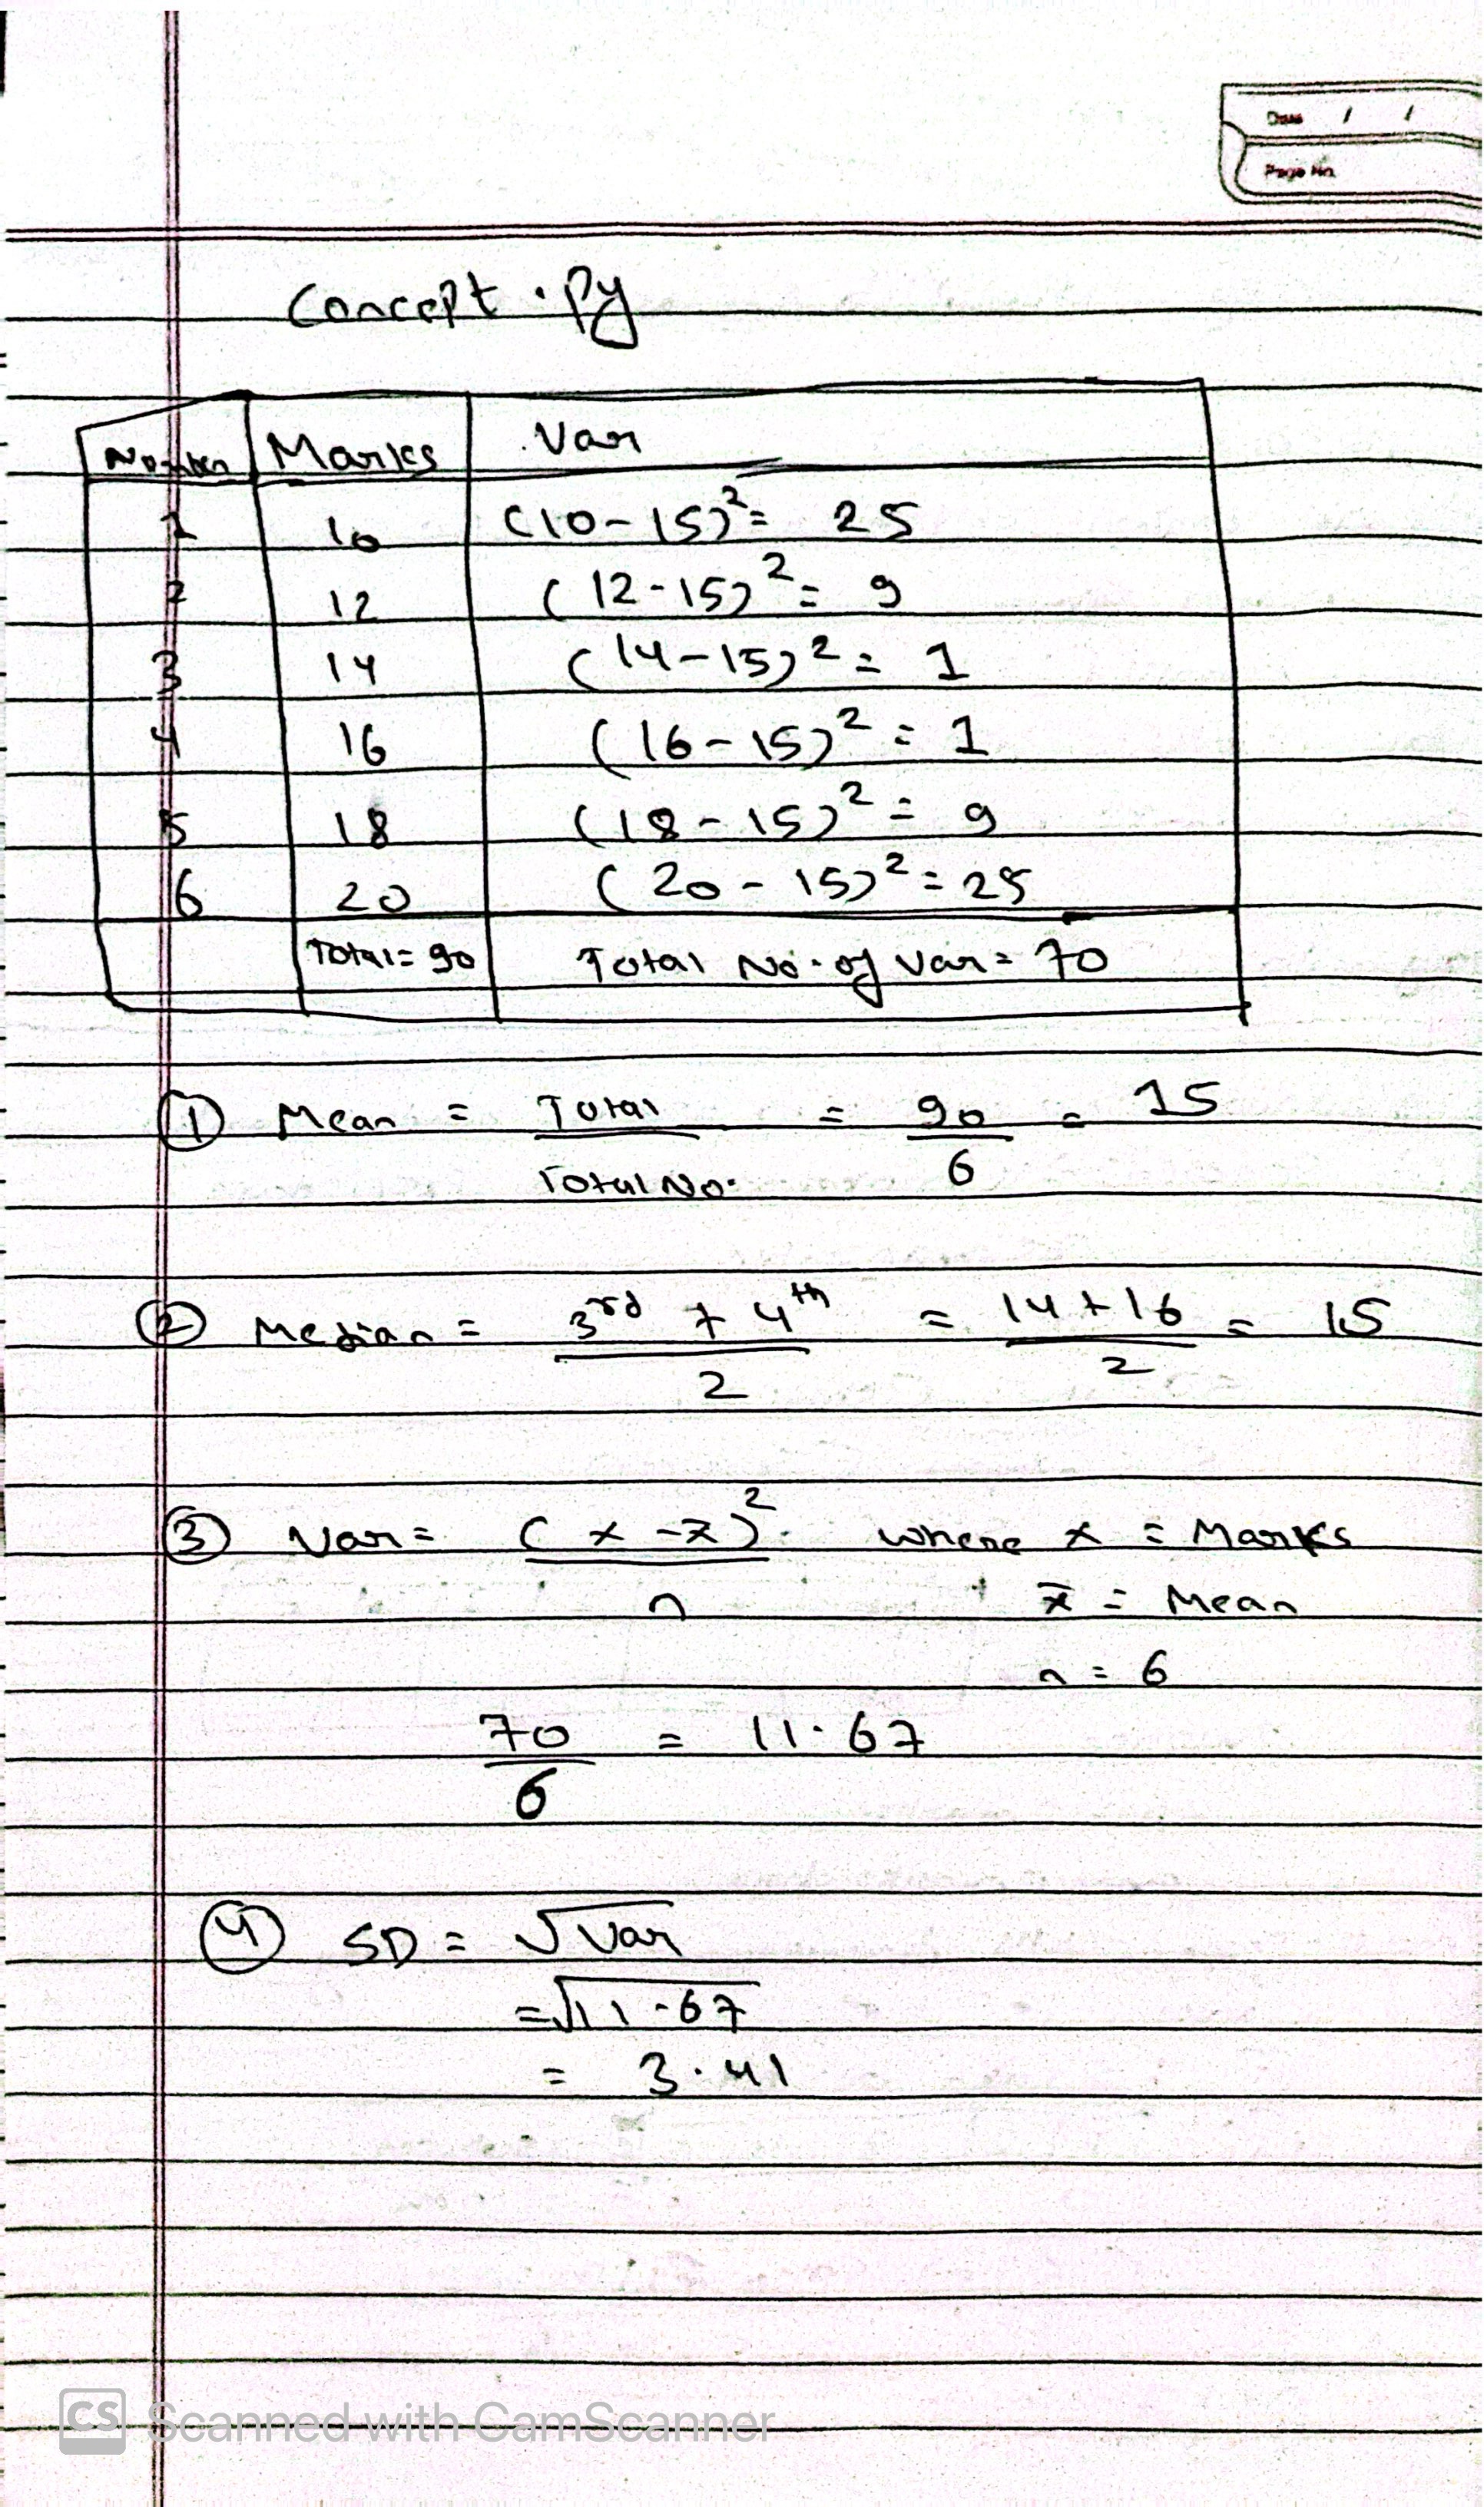 Date / /
Page No.
Concept.Py
Number Marks Var
1 10 (10-15)²= 25
2 12 (12-15)²= 9
3 14 (14-15)²= 1
4 16 (16-15)²= 1
5 18 (18-15)²= 9
6 20 (20-15)²= 25
Total= 90 Total No. of Var= 70
① Mean = Total / Total No. = 90/6 = 15
② Median = 3rd + 4th / 2 = 14+16 / 2 = 15
③ Var= (x-x̄)² / n where x = Marks
x̄ = Mean
n = 6
70/6 = 11.67
④ SD = √Var
=√11.67
= 3.41
CS Scanned with CamScanner